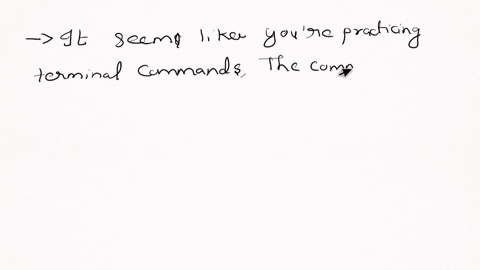 → It seems like you're practicing
terminal commands, The com